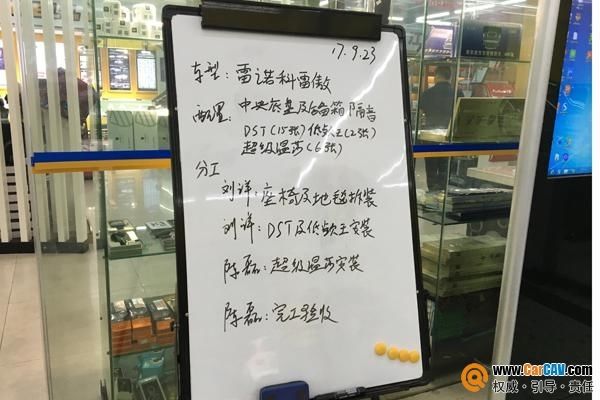 17.9.23
车型：雷诺科雷傲
配置：中央底盘及后备箱隔音
DST(15张)低频王(2张)
超级温莎(6张)
分工
刘详：座椅及地毯拆装
刘详：DST及低频王安装
陈磊：超级温莎安装
陈磊：完工验收
www.CarCAV.com
权威·引导·责任